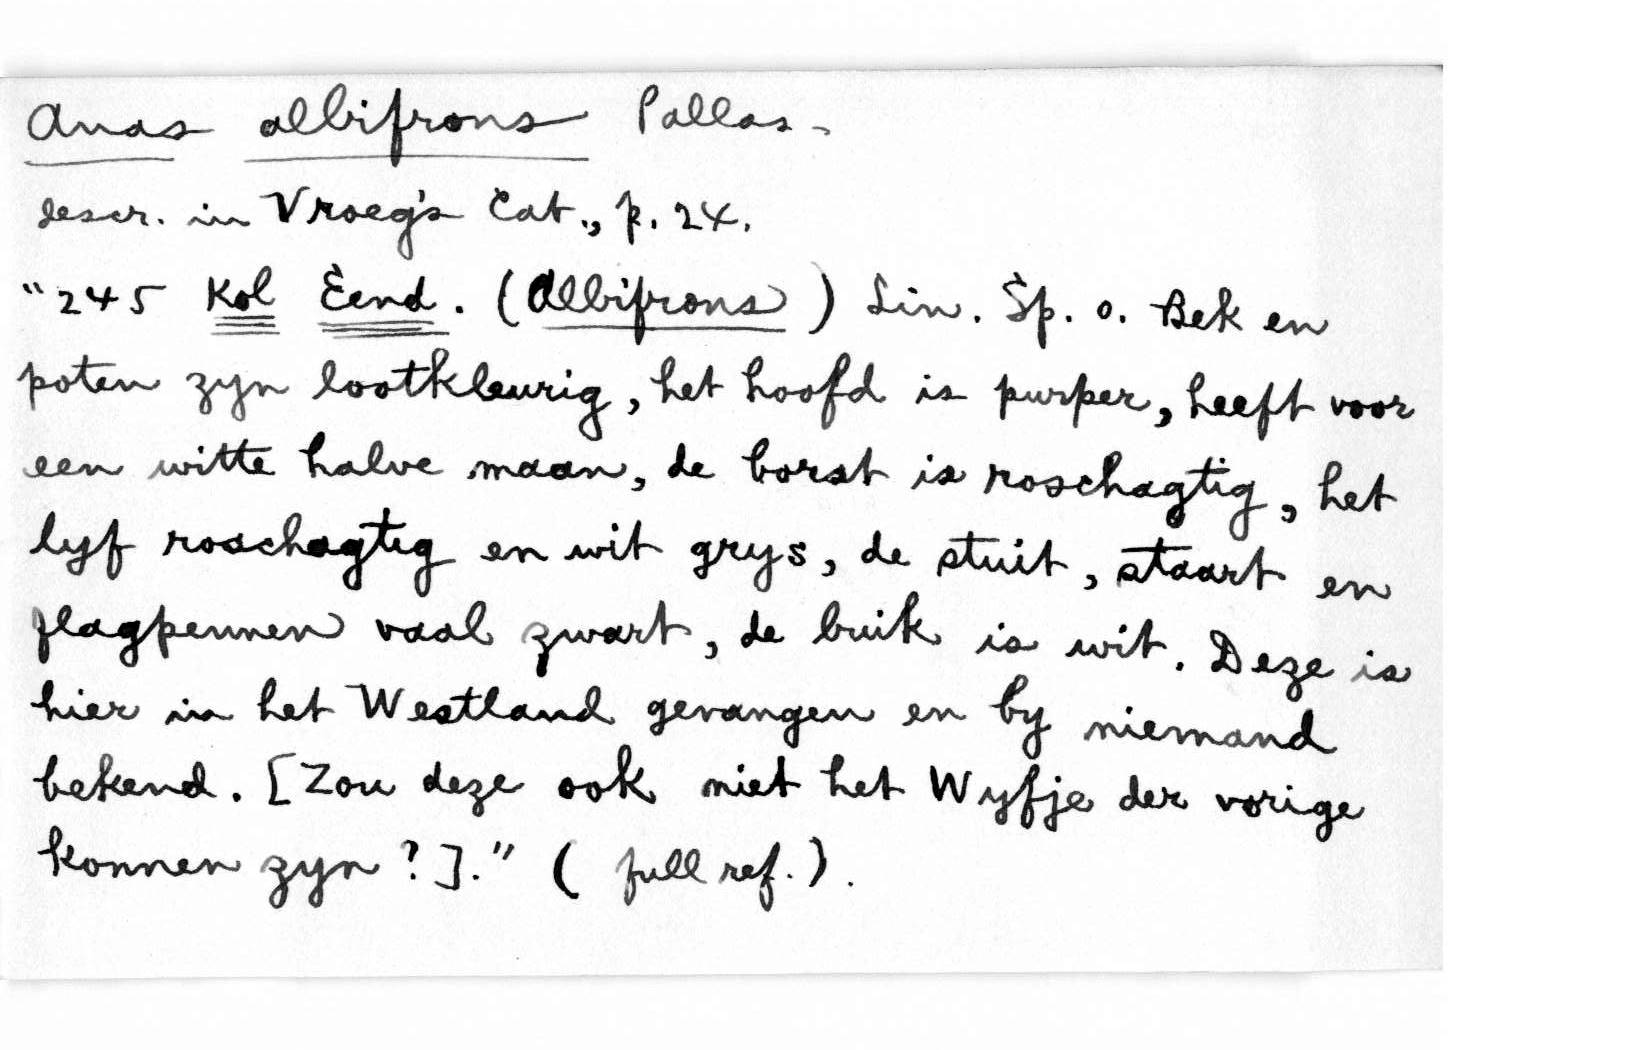 Anas albifrons Pallas.
descr. in Vroeg's Cat., p. 24.
"245 Kol Eend. (Albifrons) Lin. Sp. o. Bek en
poten zyn lootkleurig, het hoofd is purper, heeft voor
een witte halve maan, de borst is roschagtig, het
lyf roschagtig en wit grys, de stuit, staart en
flagpennen vaal zwart, de buik is wit. Deze is
hier in het Westland gevangen en by niemand
bekend. [Zou deze ook niet het Wyfje der vorige
konnen zyn?]." (full ref.).